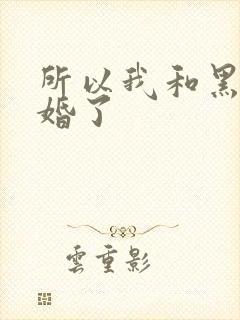 所以我和黑
婚了
雲重影